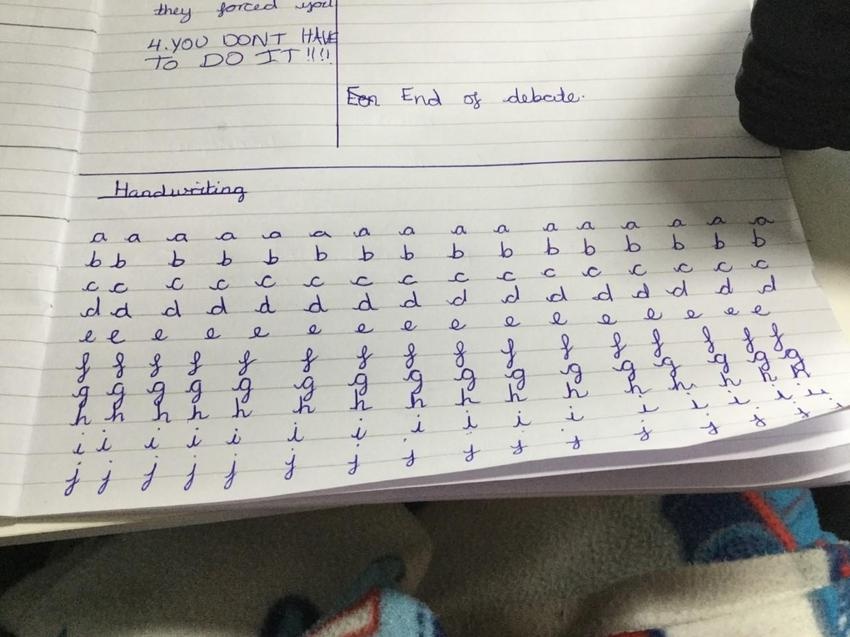 they forced you
4. YOU DONT HAVE
TO DO IT!!!!
End of debate.
Handwriting
a a a a a a a a a a a a a a a a
b b b b b b b b b b b b b b b b
c c c c c c c c c c c c c c c c
d d d d d d d d d d d d d d d d
e e e e e e e e e e e e e e e e
f f f f f f f f f f f f f f f f
g g g g g g g g g g g g g g g g
h h h h h h h h h h h h h h h h
i i i i i i i i i i i i i i i i
j j j j j j j j j j j j j j j j